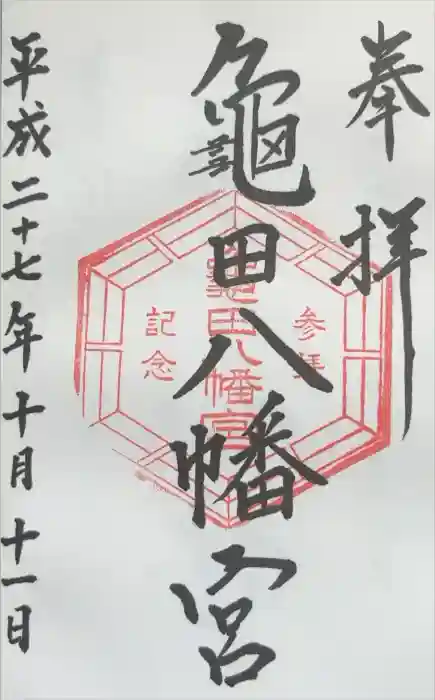 奉拝
龜田八幡宮
参拝
龜田八幡宮
記念
平成二十七年十月十一日